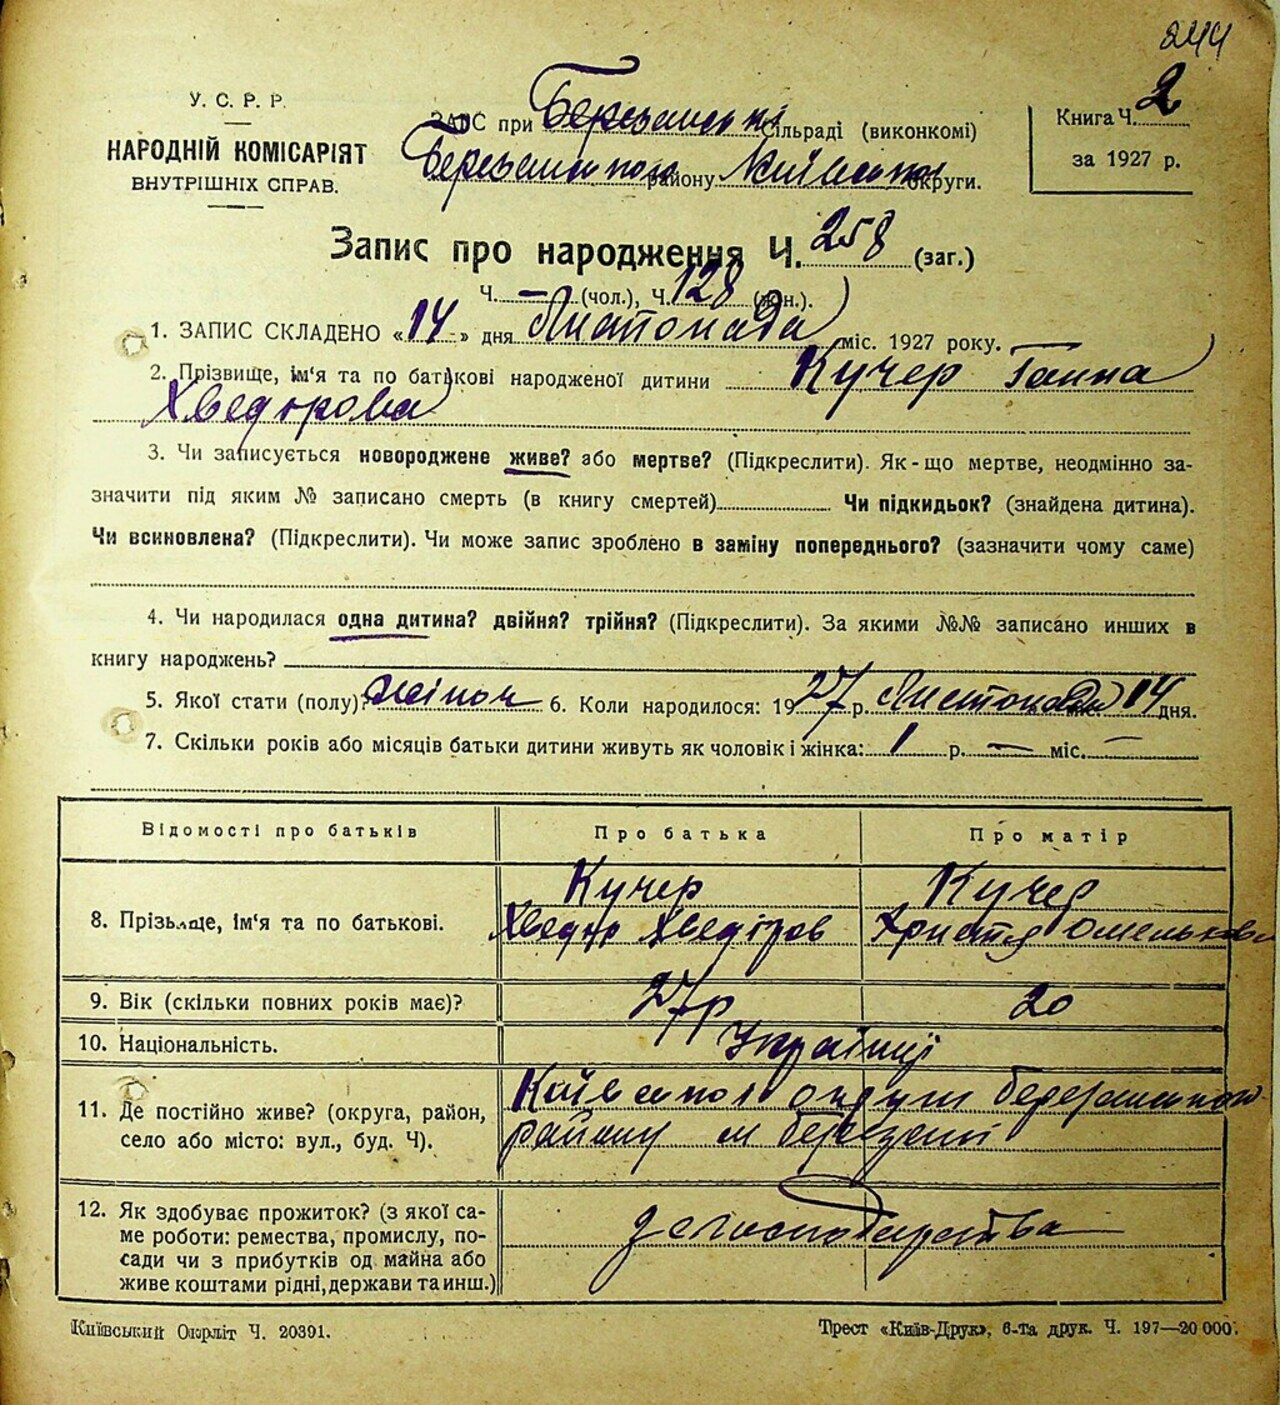 244
У. С. Р. Р.
НАРОДНІЙ КОМІСАРІЯТ
ВНУТРІШНІХ СПРАВ.
ЗАПС при Березанські сільраді (виконкомі)
Березанського району Київської округи.
Книга Ч. 2
за 1927 р.
Запис про народження Ч. 258 (заг.)
Ч. — (чол.), Ч. 128 (жін.).
1. ЗАПИС СКЛАДЕНО «14» дня Листопада міс. 1927 року.
2. Прізвище, ім'я та по батькові народженої дитини Кучер Ганна
Хведорова
3. Чи записується новороджене живе? або мертве? (Підкреслити). Як-що мертве, неодмінно за-
значити під яким № записано смерть (в книгу смертей) Чи підкидьок? (знайдена дитина).
Чи всиновлена? (Підкреслити). Чи може запис зроблено в заміну попереднього? (зазначити чому саме)
4. Чи народилася одна дитина? двійня? трійня? (Підкреслити). За якими №№ записано инших в
книгу народжень?
5. Якої стати (полу)? жіноч 6. Коли народилося: 1927 р. Листопада міс. 14 дня.
7. Скільки років або місяців батьки дитини живуть як чоловік і жінка: 1 р. — міс. —
Відомості про батьків Про батька Про матір
Кучер Кучер
8. Прізвище, ім'я та по батькові. Хведір Хведіров Христя Омелькова
9. Вік (скільки повних років має)? 27р 20
10. Національність. Українці
11. Де постійно живе? (округа, район, Київської округи
село або місто: вул., буд. Ч). району м Березані
12. Як здобуває прожиток? (з якої са-
ме роботи: ремества, промислу, по- з господарства
сади чи з прибутків од майна або
живе коштами рідні, держави та инш.)
Київський Окрліт Ч. 20391.
Трест «Київ-Друк», 6-та друк. Ч. 197—20 000.